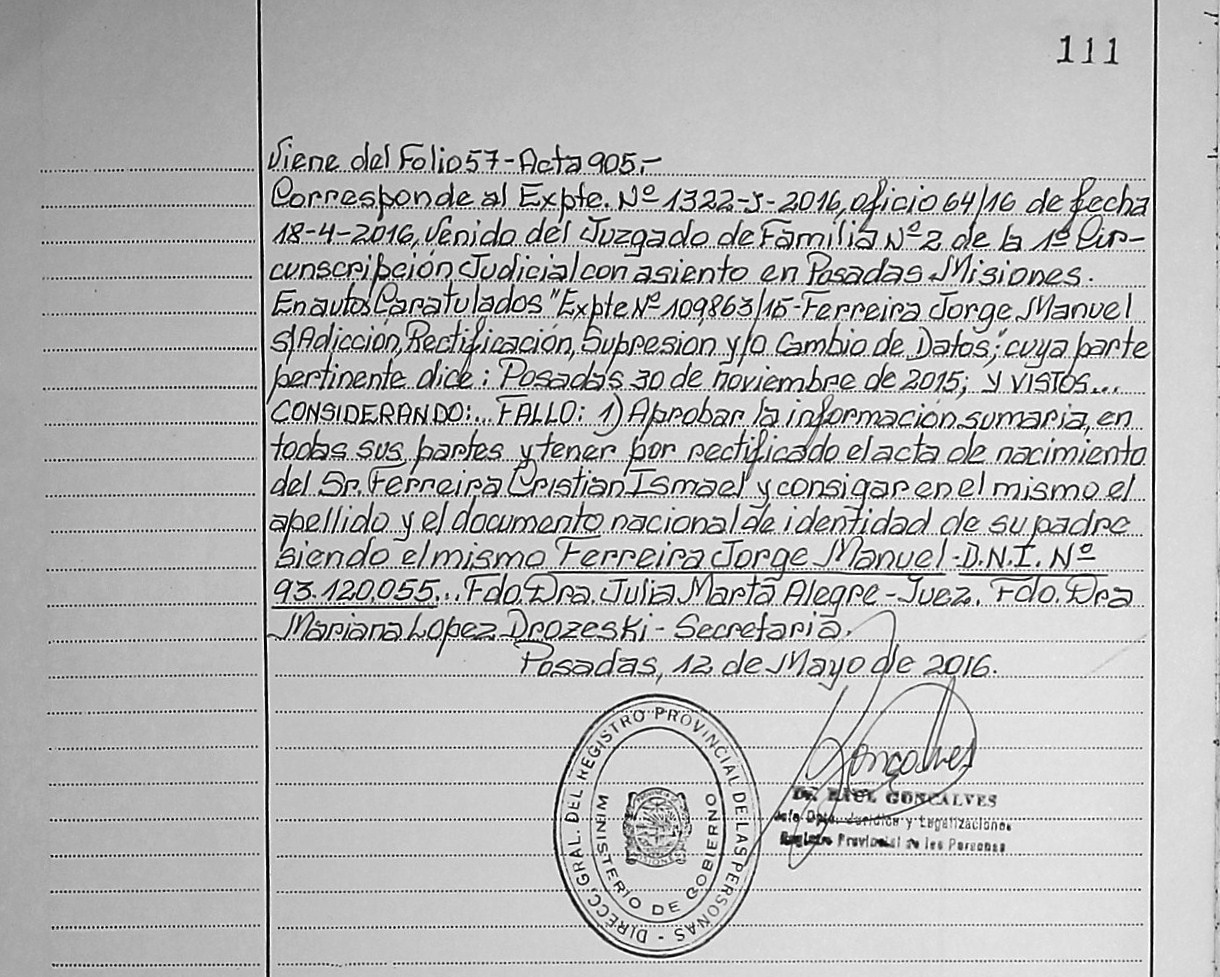 111
Viene del Folio 57-Acta 905.-
Corresponde al Expte. Nº 1322-J-2016, oficio 64/16 de fecha
18-4-2016, venido del Juzgado de Familia Nº 2 de la 1º Cir-
cunscripción Judicial con asiento en Posadas Misiones.
En autos Caratulados "Expte Nº 109863/15-Ferreira Jorge Manuel
s/Adicción, Rectificación, Supresion y/o Cambio de Datos", cuya parte
pertinente dice: Posadas 30 de noviembre de 2015; Y VISTOS...
CONSIDERANDO:... FALLO: 1) Aprobar la información sumaria, en
todas sus partes y tener por rectificado el acta de nacimiento
del Sr. Ferreira Cristian Ismael y consigar en el mismo el
apellido y el documento nacional de identidad de su padre
siendo el mismo Ferreira Jorge Manuel-D.N.I. Nº
93.120.055... Fdo. Dra. Julia Marta Alegre-Juez. Fdo. Dra
Mariana Lopez Drozeski-Secretaria.
Posadas, 12 de Mayo de 2016.
DIRECC. GRAL. DEL REGISTRO PROVINCIAL DE LAS PERSONAS -
MINISTERIO DE GOBIERNO
Goncalves
Dr. RAUL GONCALVES
Jefe Dpto. Jurídico y Legalizaciones
Registro Provincial de las Personas